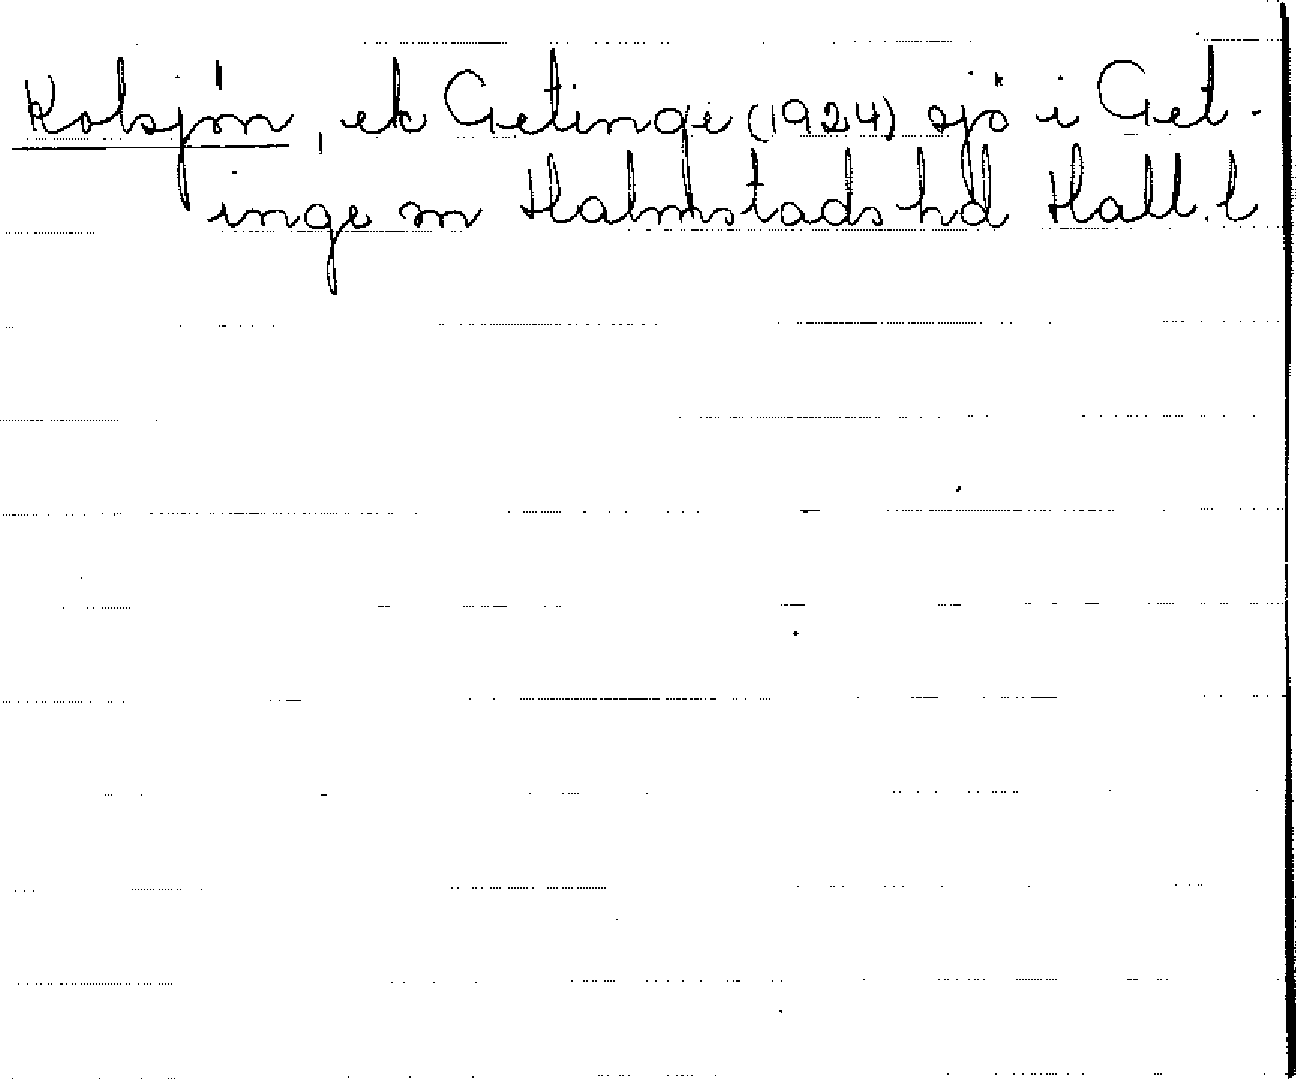 Kolsjön, ek Getinge (1924) sjö i Get-
inge sn Halmstads hd Hall. l